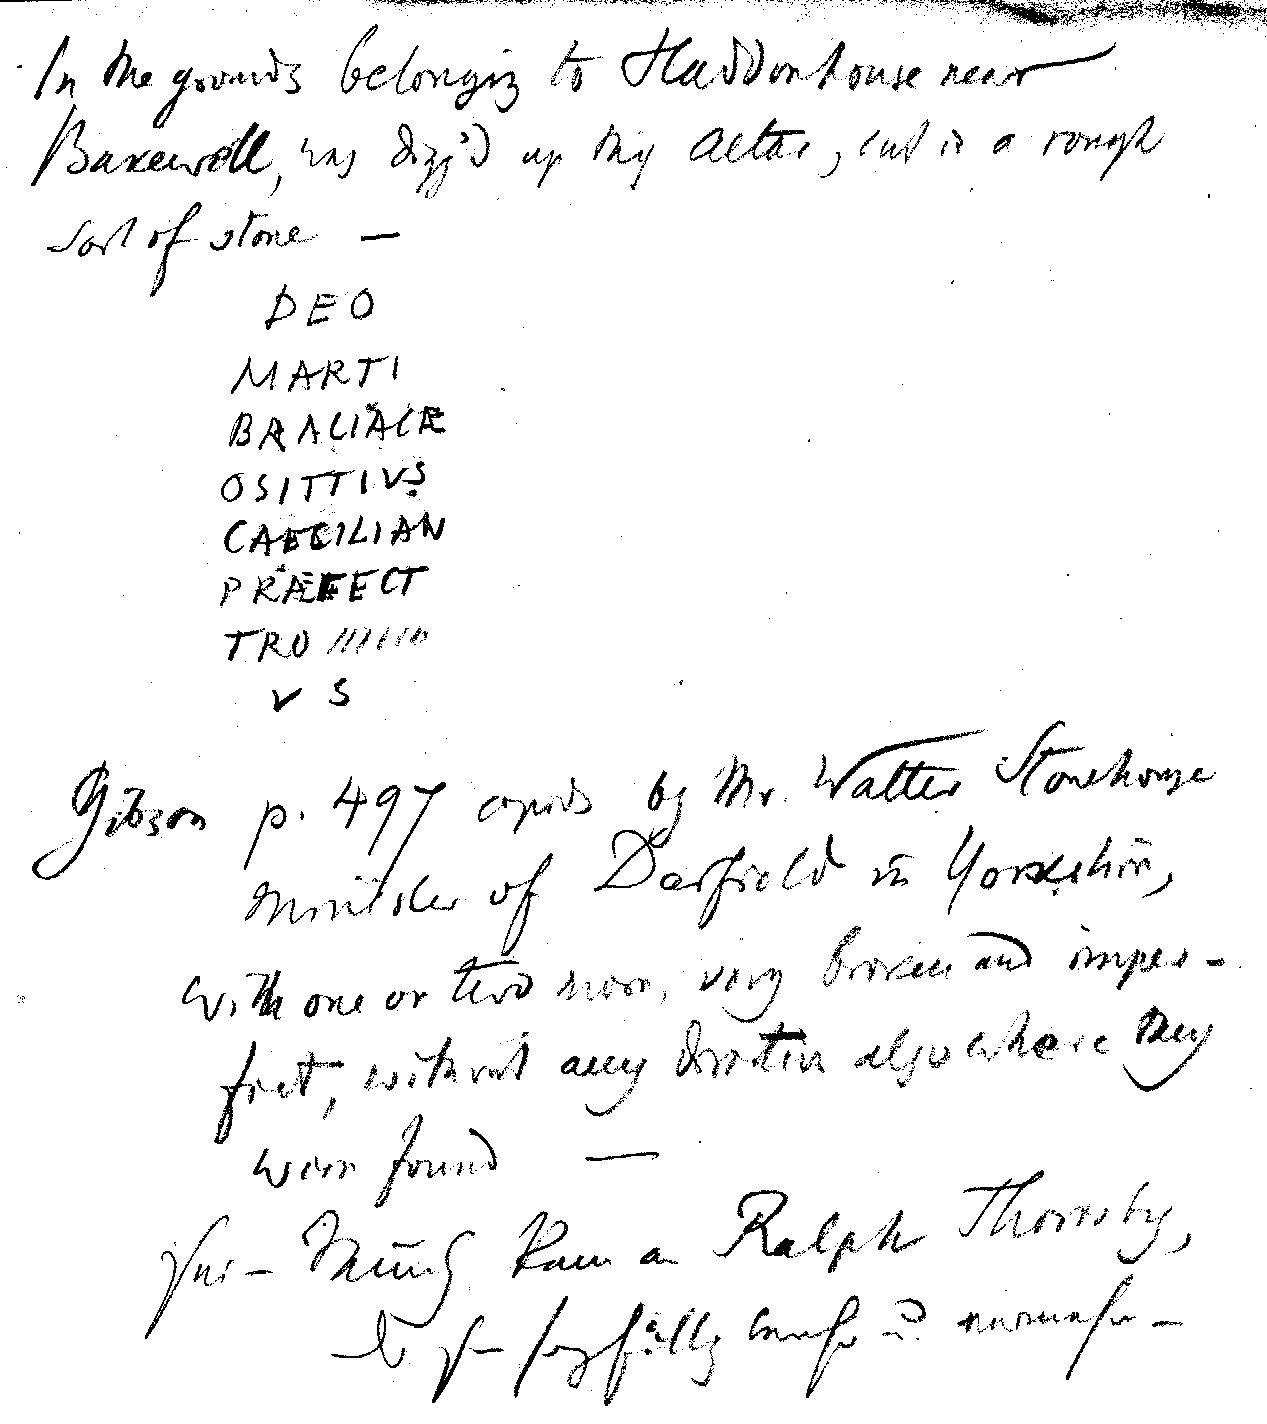 In the grounds belonging to Haddonhouse near
Bakewell, was digg'd up this Altar, cut in a rough
sort of stone —
DEO
MARTI
BRALIACÆ
OSITTIVS
CAECILIAN
PRÆFECT
TRO //////
V S
Gibson p. 497 copied by Mr. Walter Stonehouse
Minister of Darfield in Yorkshire,
with one or two more, very broken and imper-
fect, without any direction also where they
were found —
Ralph Thoresby,